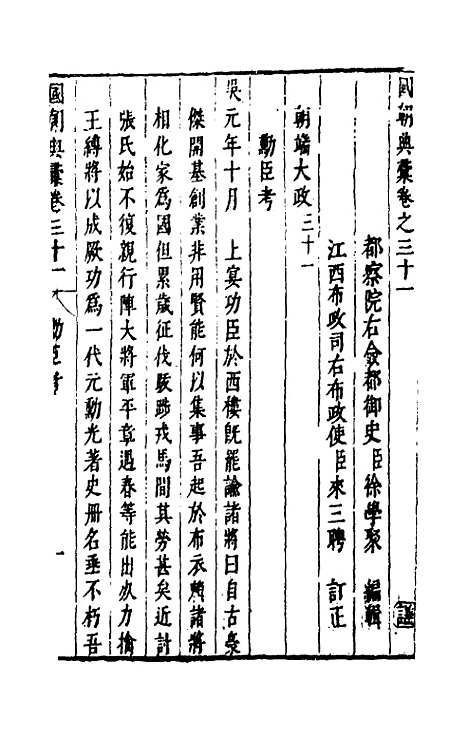 國朝典彙卷之三十一
都察院右僉都御史臣徐學聚 編輯
江西布政司右布政使臣來三聘 訂正
朝端大政三十一
勳臣考
吳元年十月 上宴功臣於西樓既罷諭諸將曰自古豪
傑開基創業非用賢能何以集事吾起於布衣與諸將
相化家為國但累歲征伐馳戎馬間其勞甚矣近討
張氏始不復親行陣大將軍平章遇春等能出次力擒
王縛將以成厥功為一代元勳光著史册名垂不朽吾
國朝典彙卷三十一 勳臣考 一